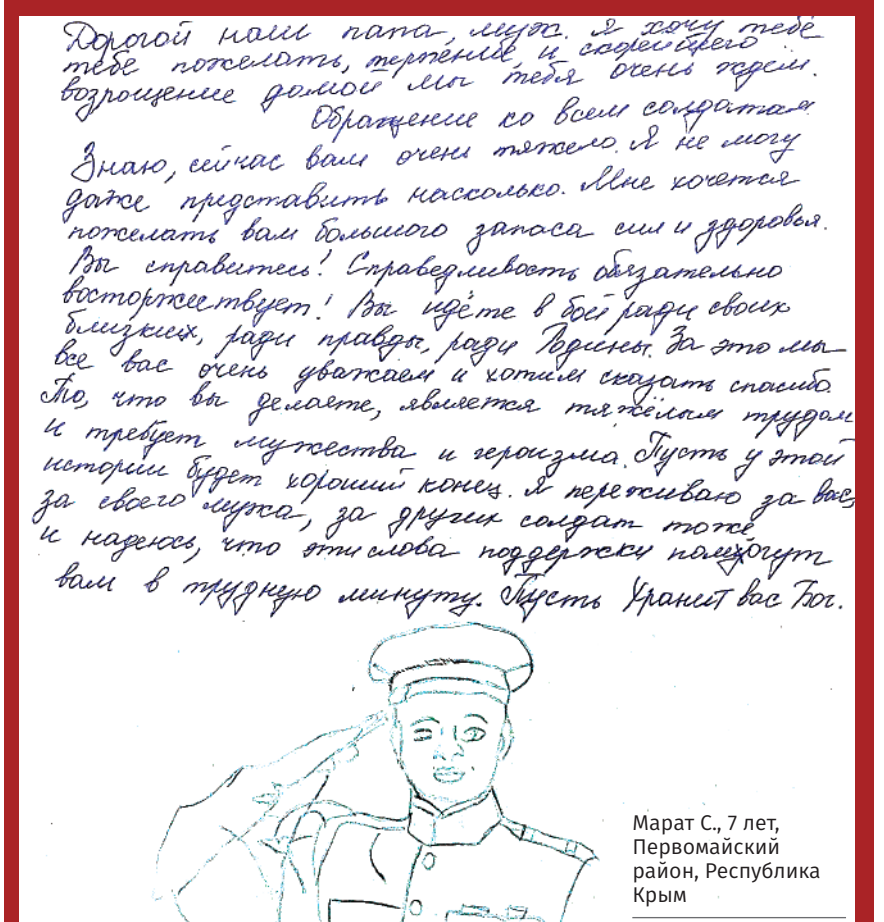 Дорогой наш папа, муж. Я хочу тебе
тебе пожелать, терпение, и скорейшего
возрощение домой мы тебя очень ждём.
Обращение ко всем солдатам.
Знаю, сейчас вам очень тяжело. Я не могу
даже представить насколько. Мне хочется
пожелать вам большого запаса сил и здоровья.
Вы справитесь! Справедливость обязательно
восторжествует! Вы идёте в бой ради своих
близких, ради правды, ради Родины. За это мы
все вас очень уважаем и хотим сказать спасибо.
То, что вы делаете, является тяжёлым трудом
и требует мужества и героизма. Пусть у этой
истории будет хороший конец. Я переживаю за вас,
за своего мужа, за других солдат тоже
и надеюсь, что эти слова поддержки помогут
вам в трудную минуту. Пусть Хранит вас Бог.
Марат С., 7 лет,
Первомайский
район, Республика
Крым